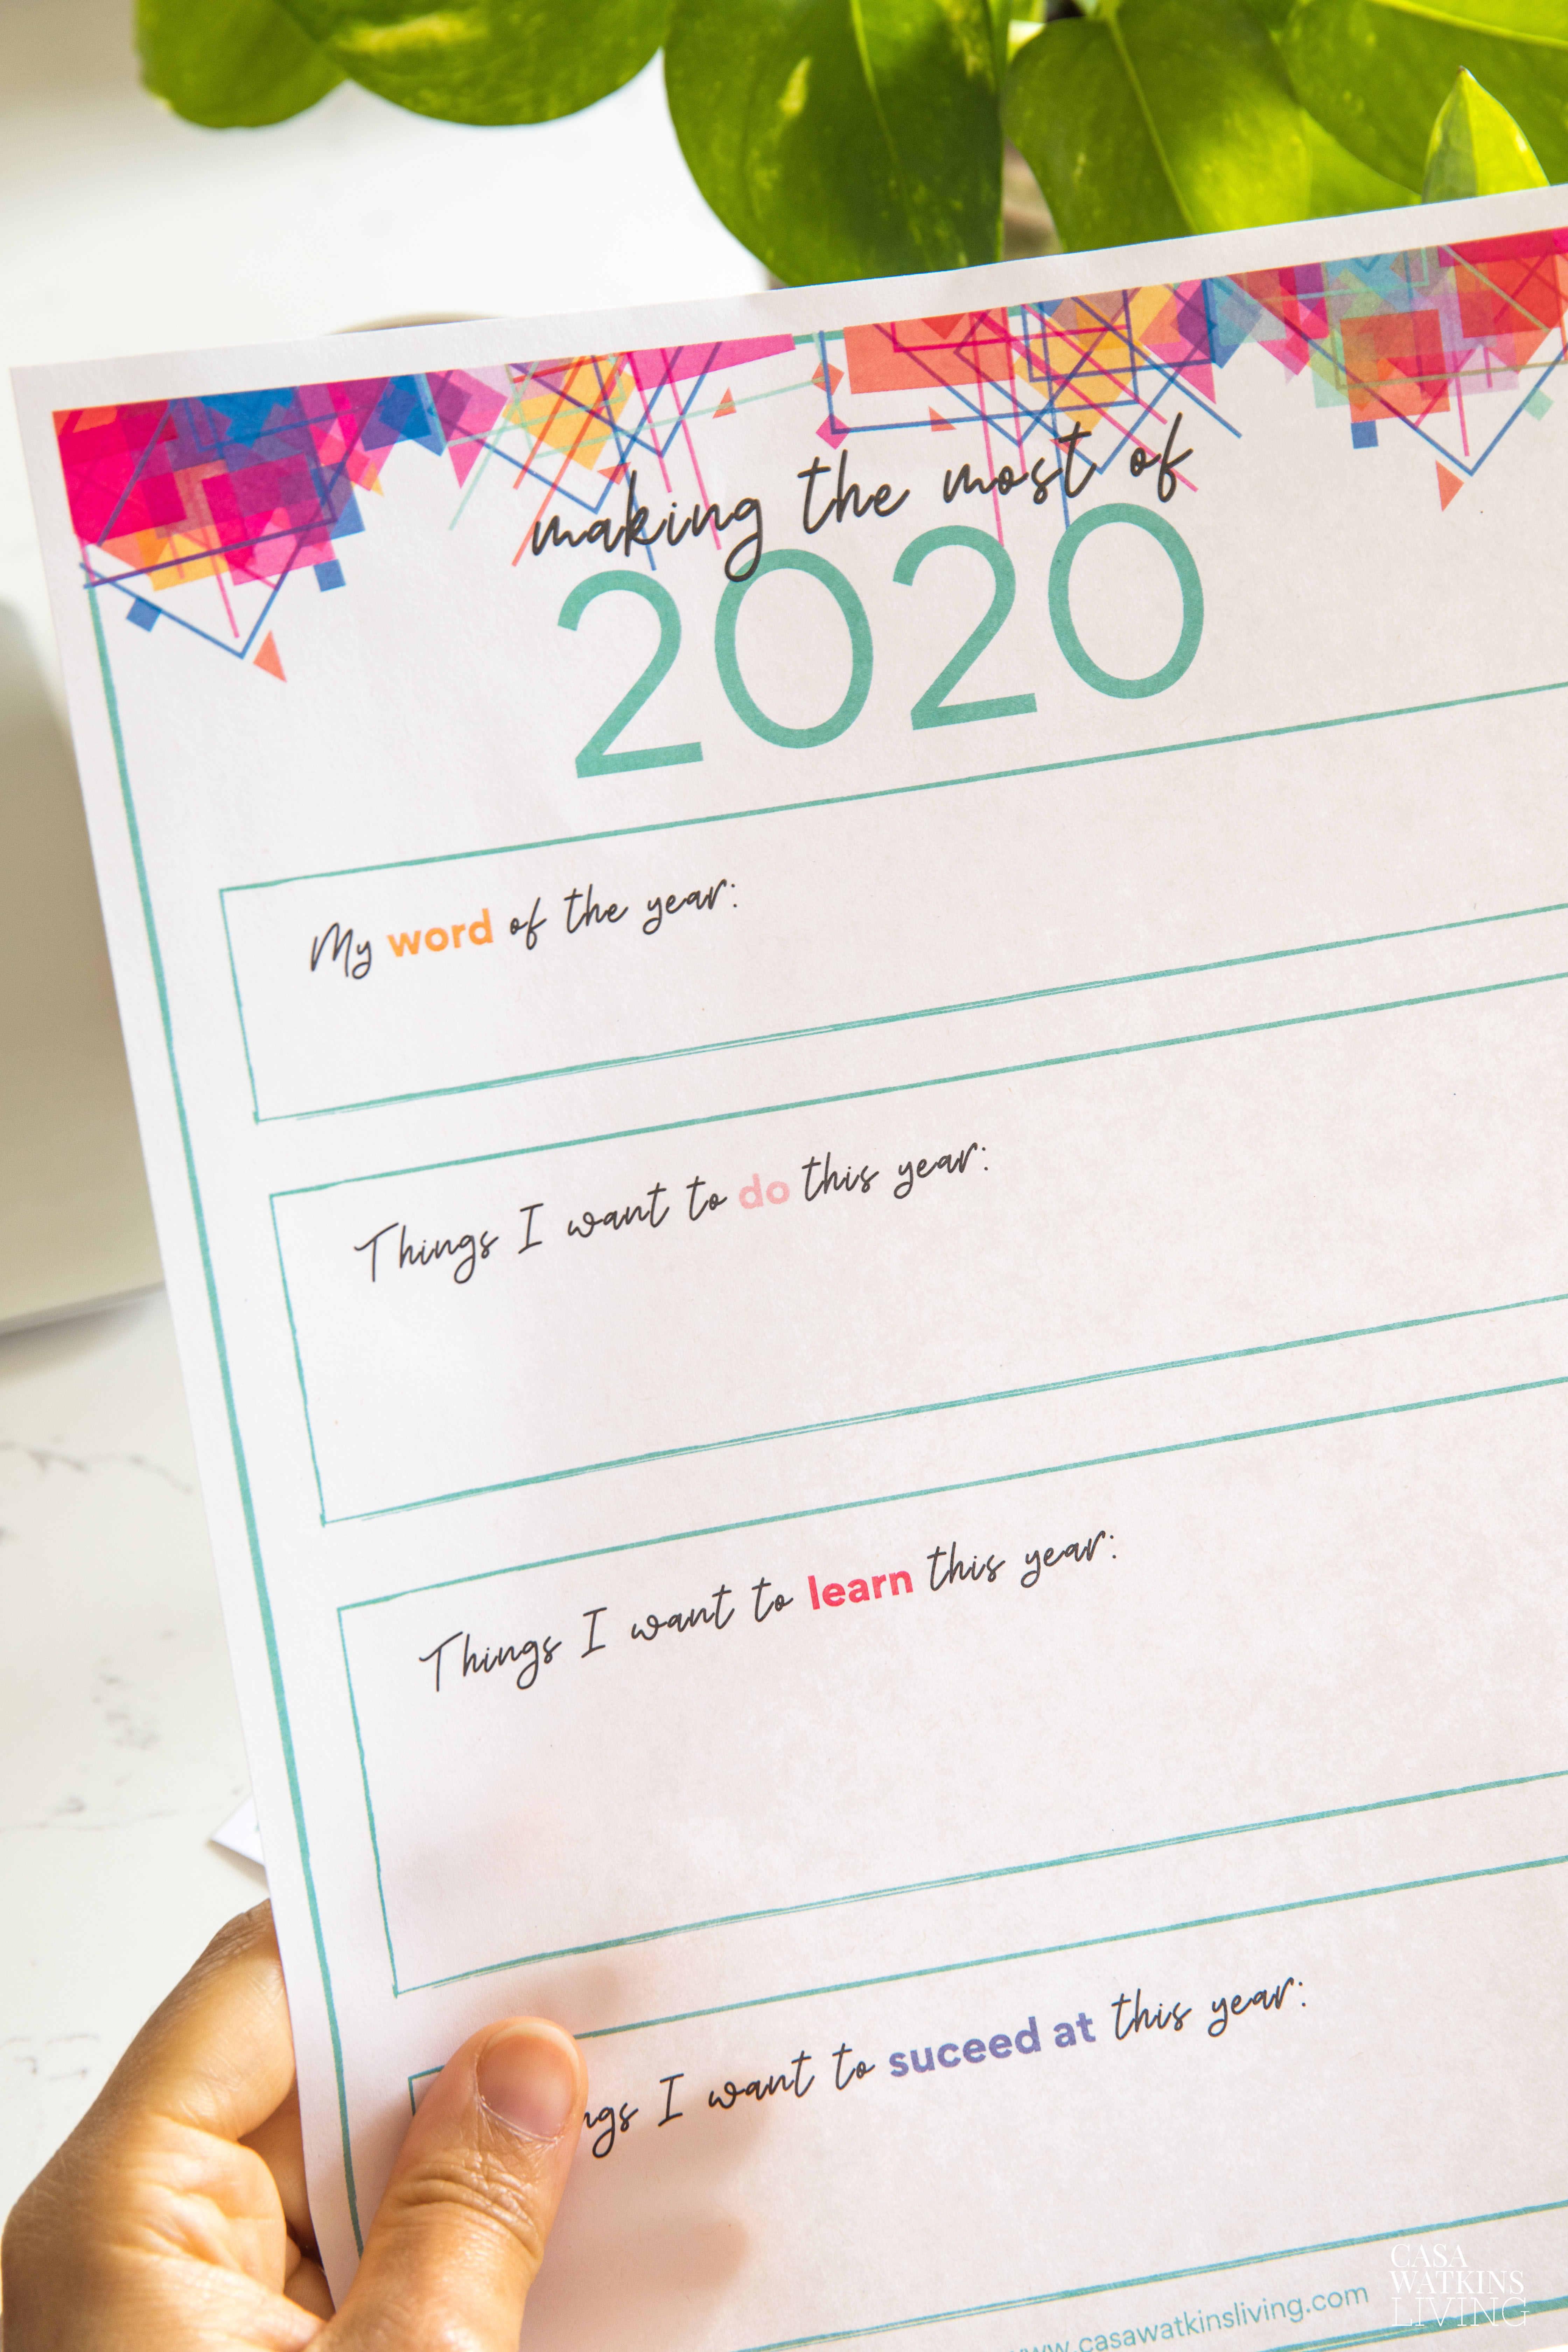 making the most of
2020
My word of the year:
Things I want to do this year:
Things I want to learn this year:
ngs I want to suceed at this year:
www.casawatkinsliving.com
CASA
WATKINS
LIVING